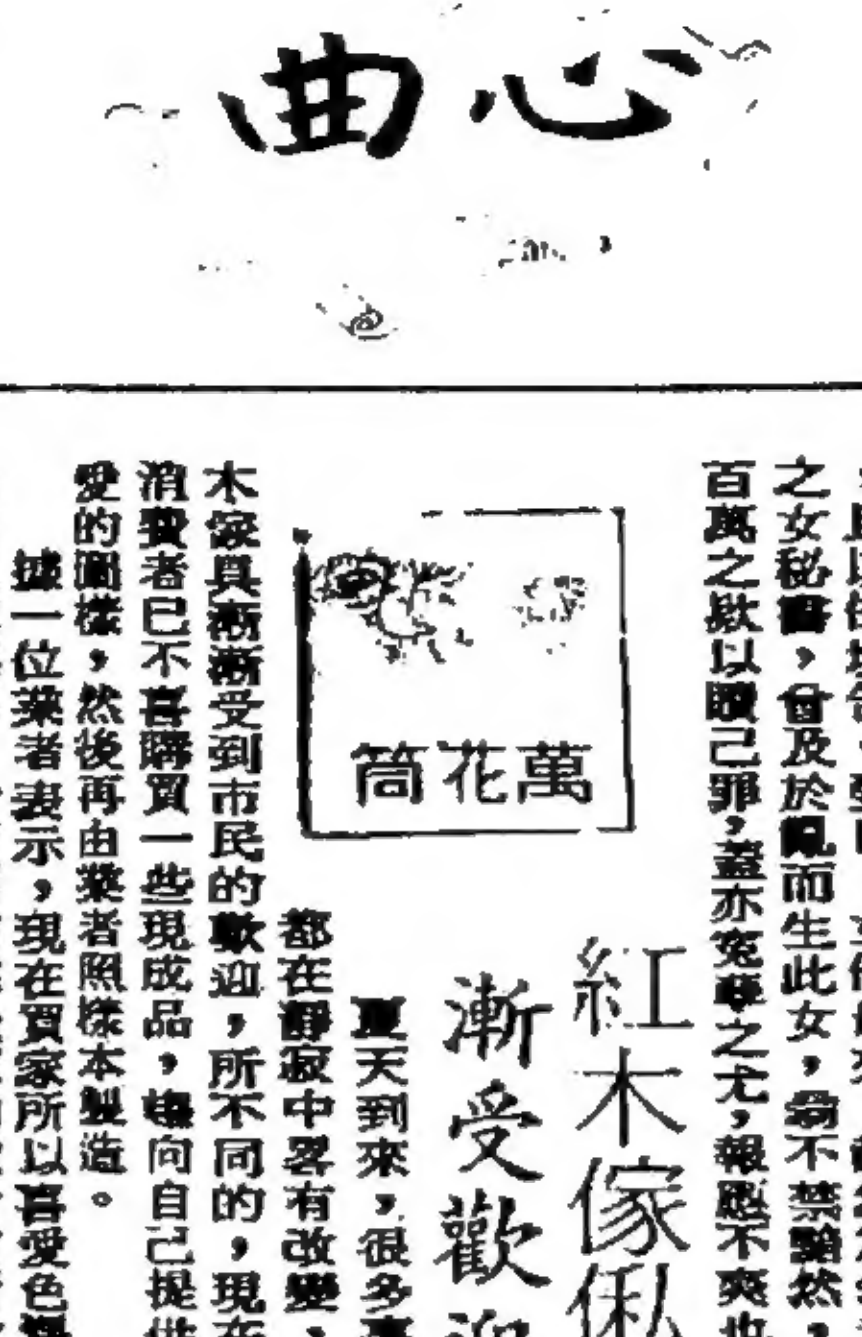 心曲
之女秘書，曾及於亂而生此女，翁不禁黯然，
百萬之欵以贖己罪，蓋亦冤孽之尤，報應不爽也
萬花筒
紅木傢俬
漸受歡迎
夏天到來，很多事
都在靜寂中畧有改變、
木家具漸漸受到市民的歡迎，所不同的，現在
消費者已不喜購買一些現成品，嚮向自己提供
愛的圖樣，然後再由業者照樣本製造。
據一位業者表示，現在買家所以喜愛色